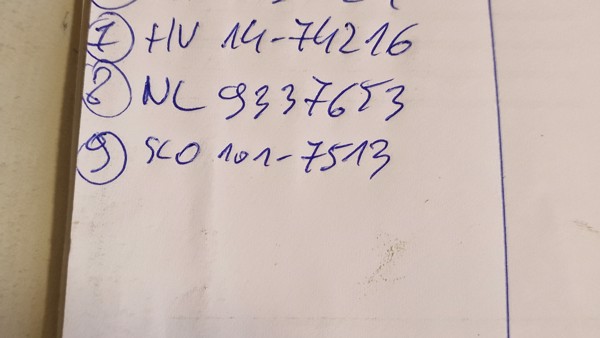 7 HU 14-74216
8 NL 9337653
9 SCO 101-7513